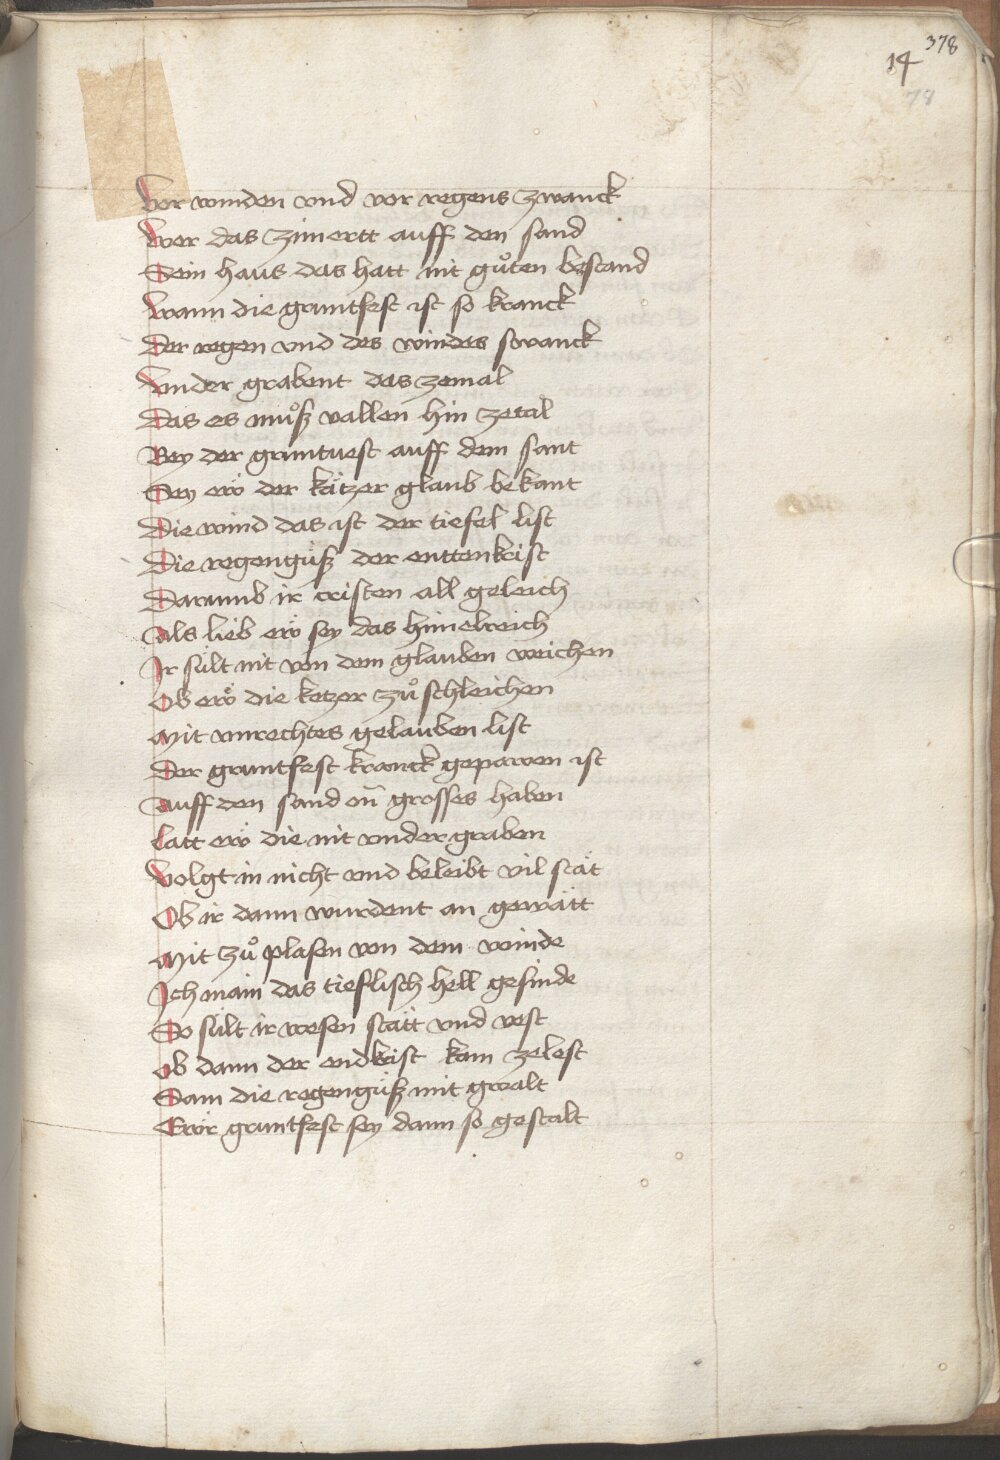 378
14
78
Vor winden vnd vor regens zwanck
Wer das zimertt auff den sand
Sein haus das hatt nit gůten bestand
Wann die gruntfest ist so kranck
Der regen vnd des windes swanck
Vnder grabent das zemal
Das es můsz vallen hin zetal
Bey der gruntuest auff dem sant
Sey ew der kätzer glaub bekant
Die wind das ist der tiefel list
Die regengüsz der enttenkrist
Darumb ir cristen all geleich
Als lieb ew sey das himelreich
Ir sült nit von dem glauben weichen
Ob ew die ketzer zů schleichen
Mit vnrechtes gelauben list
Der gruntfest kranck gepawen ist
Auff den sand on grosses haben
Latt ew die nit vnder graben
Volgt in nicht vnd beleibt vil stät
Ob ir dann wurdent an gewätt
Mit zů plasen von dem winde
Ich main das tieflisch hell gesinde
So sült ir wesen stätt vnd vest
Ob dann der endkrist kam zelest
Sam die regengüsz mit gwalt
Ewr gruntfest sey dann so gestalt